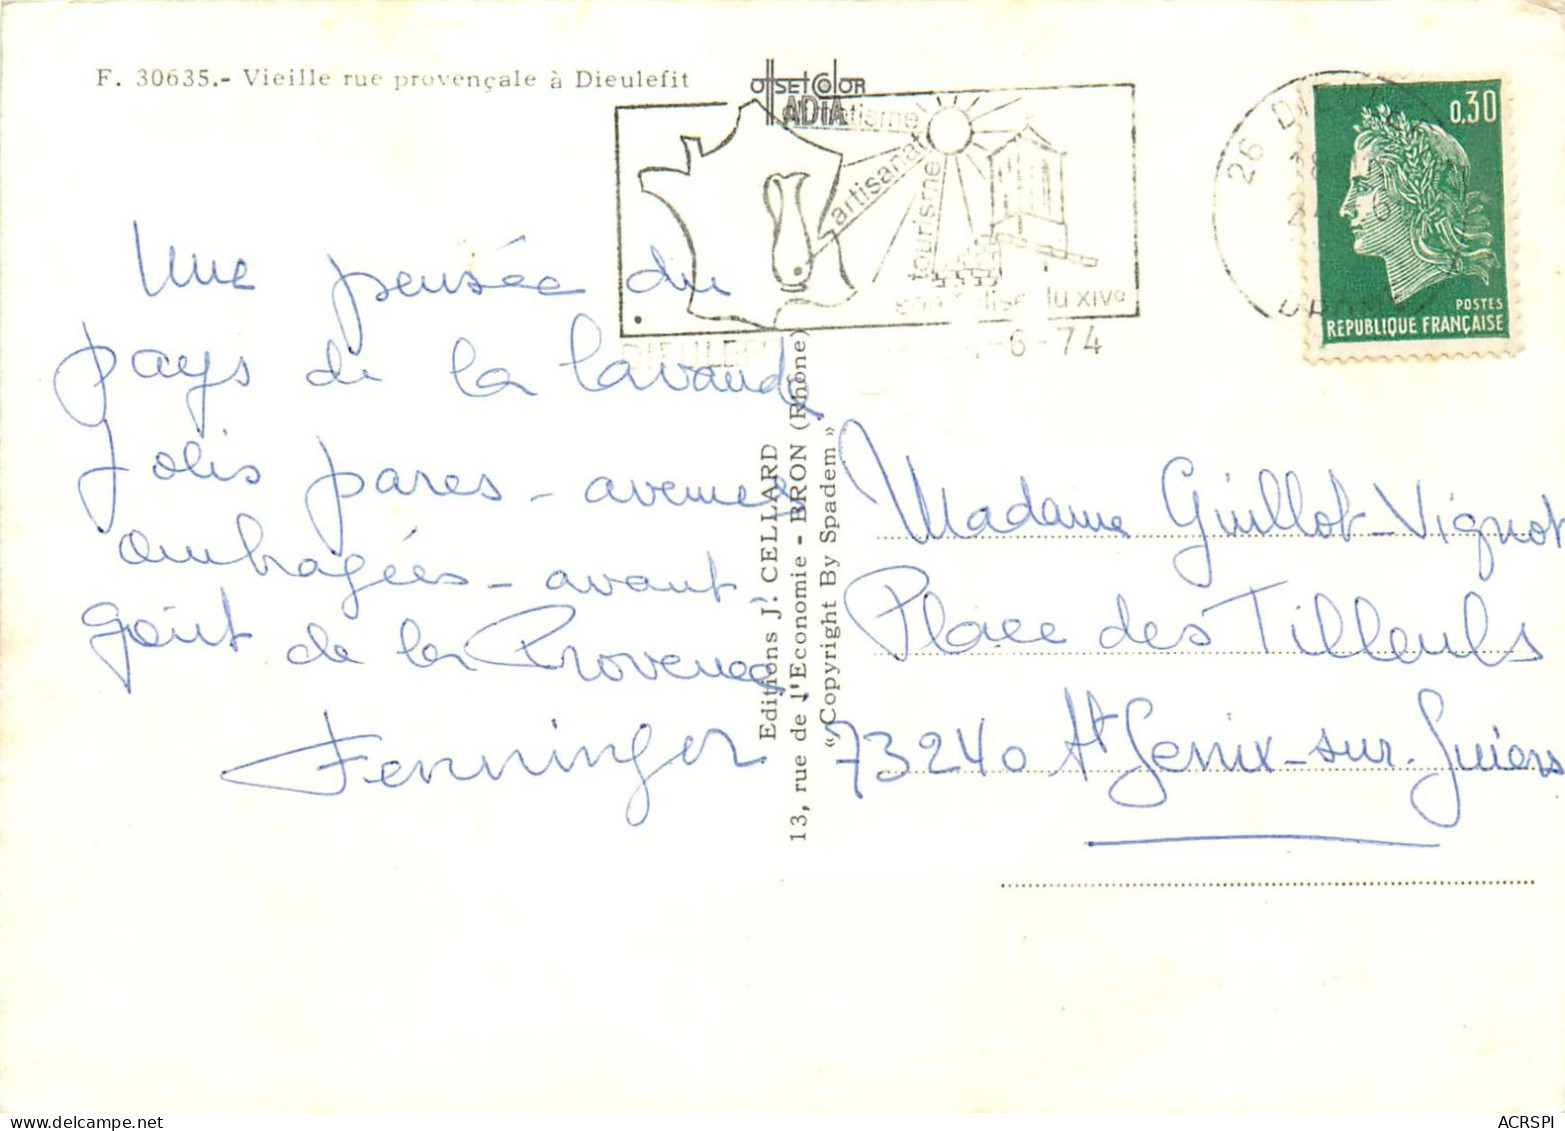 F. 30635.- Vieille rue provençale à Dieulefit
OFFSET COLOR
ADIA
artisanat
tourisme
du XIVe
-6-74
26
0,30
POSTES
REPUBLIQUE FRANÇAISE
Une pensée du
pays de la lavande
Jolis parcs - avenues
ombragées - avant-
goût de la Provence
Fenninger
Editions J. CELLARD
13, rue de l'Economie - BRON (Rhône)
“Copyright By Spadem”
Madame Guillot-Vignot
Place des Tilleuls
73240 St Genix-sur-Guiers
ACRSPI